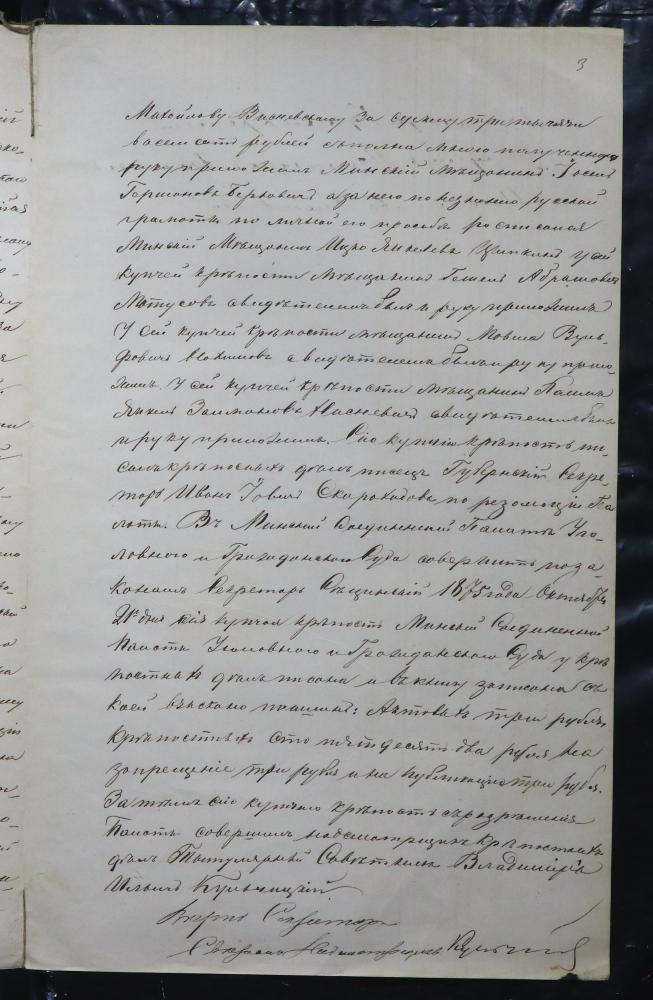 3
Михайлову Висневскому за сумму три тысячи
восемсотъ рублей сполна мною полученную
руку приложилъ Минскій мѣщанинъ Іосель
Гершоновъ Берковичъ а за него по незнанію русской
грамоты по личной его просьбѣ росписался
Минскій Мѣщанинъ Ицко Янкелевъ Ципкинъ У сей
купчей крѣпости мѣщанинъ Абрамовъ
Мотусовъ свидѣтелемъ былъ и руку приложилъ
У сей купчей крѣпости мѣщанинъ Мовша Вуль-
фовичъ свидѣтелемъ былъ и руку прило-
жилъ. У сей купчей крѣпости мѣщанинъ
Янкель Залмановъ свидѣтелемъ былъ
и руку приложилъ. Сію купчую крѣпость пи-
салъ крѣпостныхъ дѣлъ писецъ Губернскій Секре-
тарь Иванъ Іовлев Скороходовъ по резолюціи Па
латы. Въ Минской Соединенной Палатѣ Уго-
ловнаго и Гражданскаго Суда совершить по за-
конамъ Секретарь 1875 года Октября
21 дня сія купчая крѣпость Минской Соединенной
Палаты Уголовнаго и Гражданскаго Суда у крѣ
постныхъ дѣлъ писана и въ книгу записана съ
коей взыскано пошлинъ: Актовыхъ три рубля
крѣпостныхъ сто пятдесятъ два рубля на
запрещеніе три рубля и на публикацію три рубля.
Затѣмъ сію купчую крѣпость съ разрѣшенія
Палаты совершилъ надсмотрщикъ крѣпостныхъ
дѣлъ Титулярный Совѣтникъ Владиміръ
Ильичъ Кульчицкій
Вѣрно Секретарь
Свѣрялъ Надсмотрщикъ Кульчиц